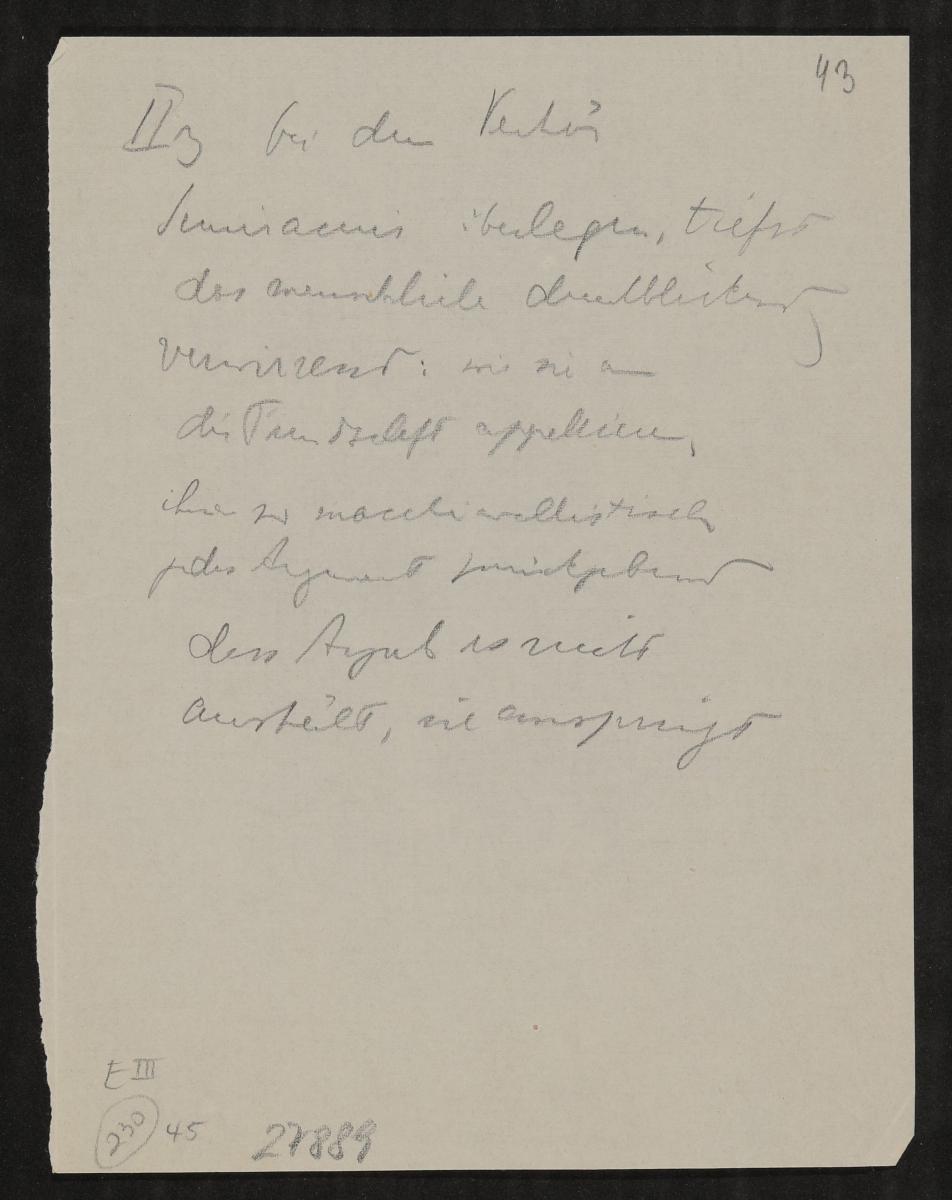 43
II 3 bei dem Verhör
Semiramis überlegen, tiefst
das menschliche durchblickend
verwirrend: wie sie an
die Freundschaft appellieren,
ihnen so macchiavellistisch
jedes Argument zurückgebend
dass Arzab es nicht
aushält, sie anspringt
E III
230 45 27889